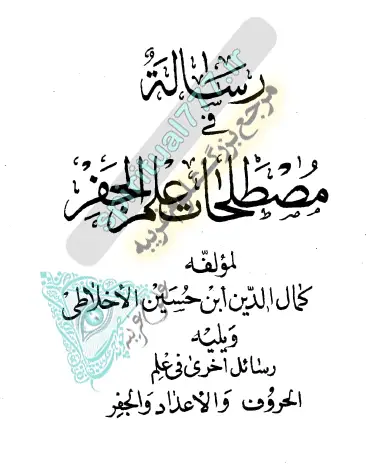 رسالة
في
مصطلحات علم الجفر
لمؤلفه
كمال الدين ابن حسين الاخلاطي
ويليه
رسائل اخرى في علم
الحروف والاعداد والجفر